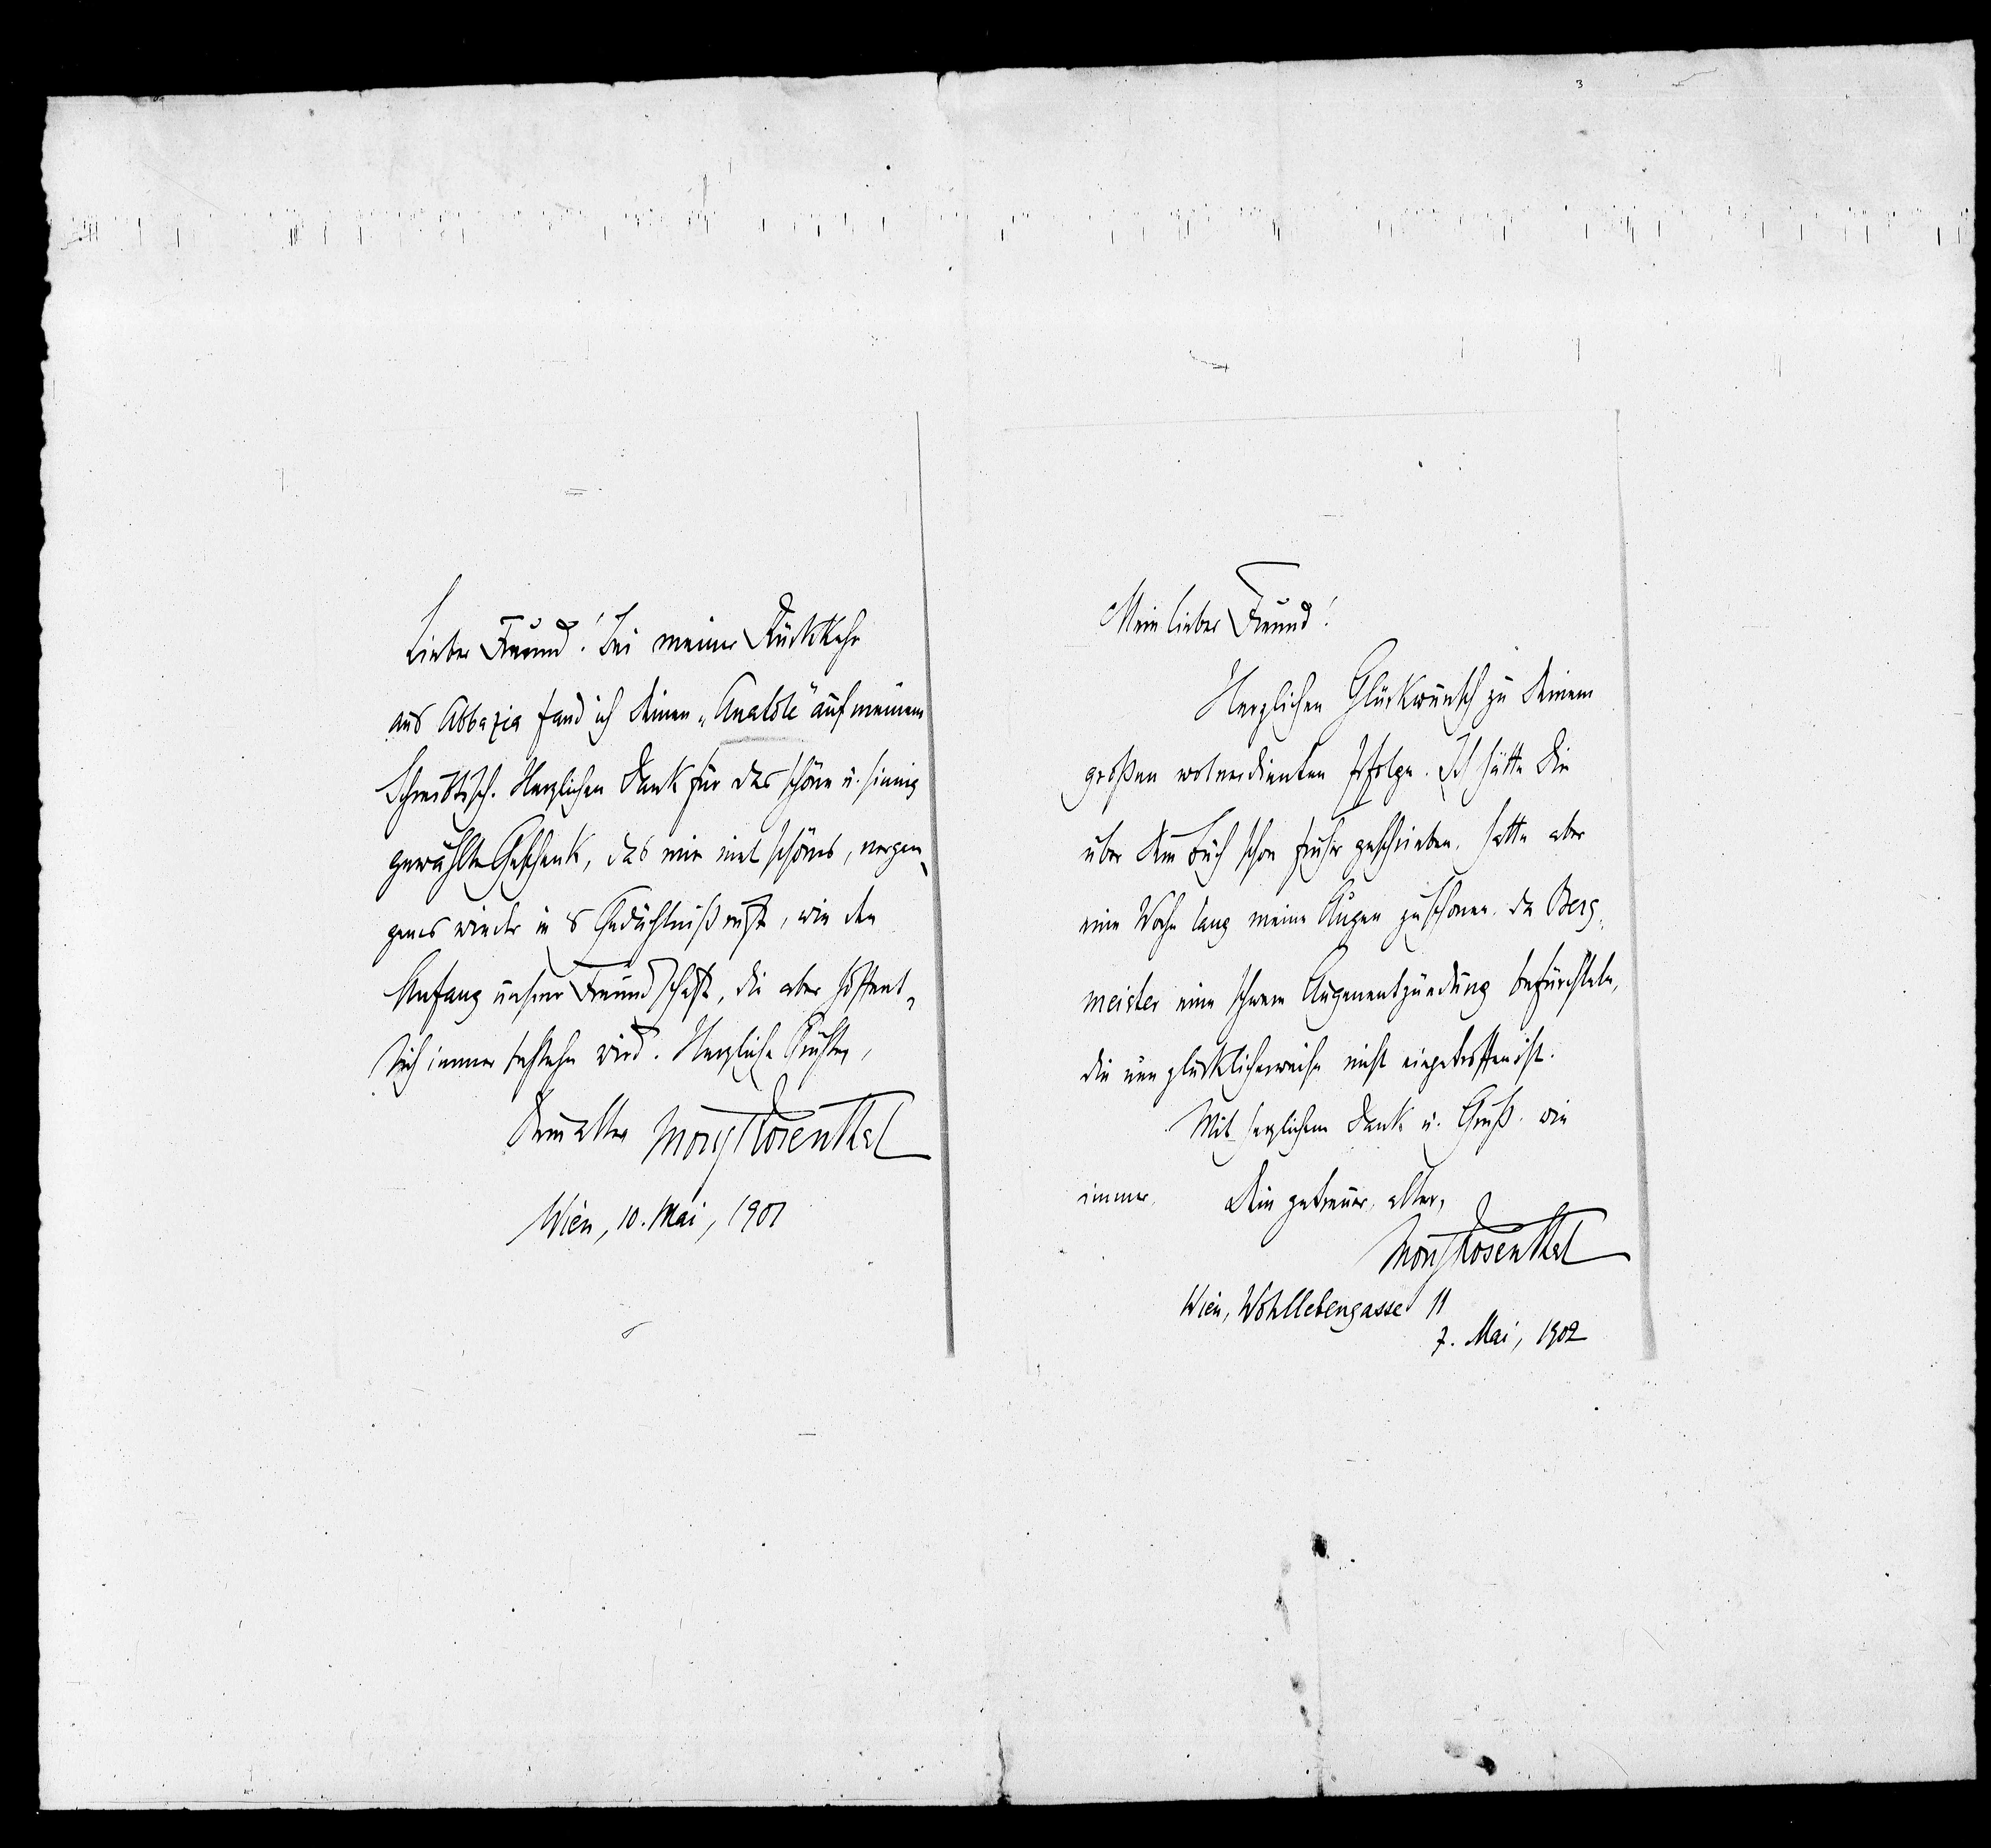 3
Lieber Freund! Bei meiner Rückkehr
aus Abbazia fand ich Deinen „Anatole" auf meinem
Schreibtisch. Herzlichen Dank für das schöne u. sinnig
gewählte Geschenk, das mir viel schönes, vergan-
genes wieder in's Gedächtniß ruft, wie den
Anfang unserer Freundschaft, die aber hoffent-
lich immer bestehn wird. Herzliche Grüße,
Dein alter Moriz Rosenthal
Wien, 10. Mai, 1901
Mein lieber Freund!
Herzlichen Glückwunsch zu Deinem
großen wolverdienten Erfolge. Ich hätte Dir
über Dein Buch schon früher geschrieben, hatte aber
eine Woche lang meine Augen zu schonen, da Berg-
meister eine schwere Augenentzündung befürchtete,
die nun glücklicherweise nicht eingetroffen ist.
Mit herzlichem Dank u. Gruß wie
immer, Dein getreuer, alter,
Moriz Rosenthal
Wien, Wohllebengasse 11
7. Mai, 1902